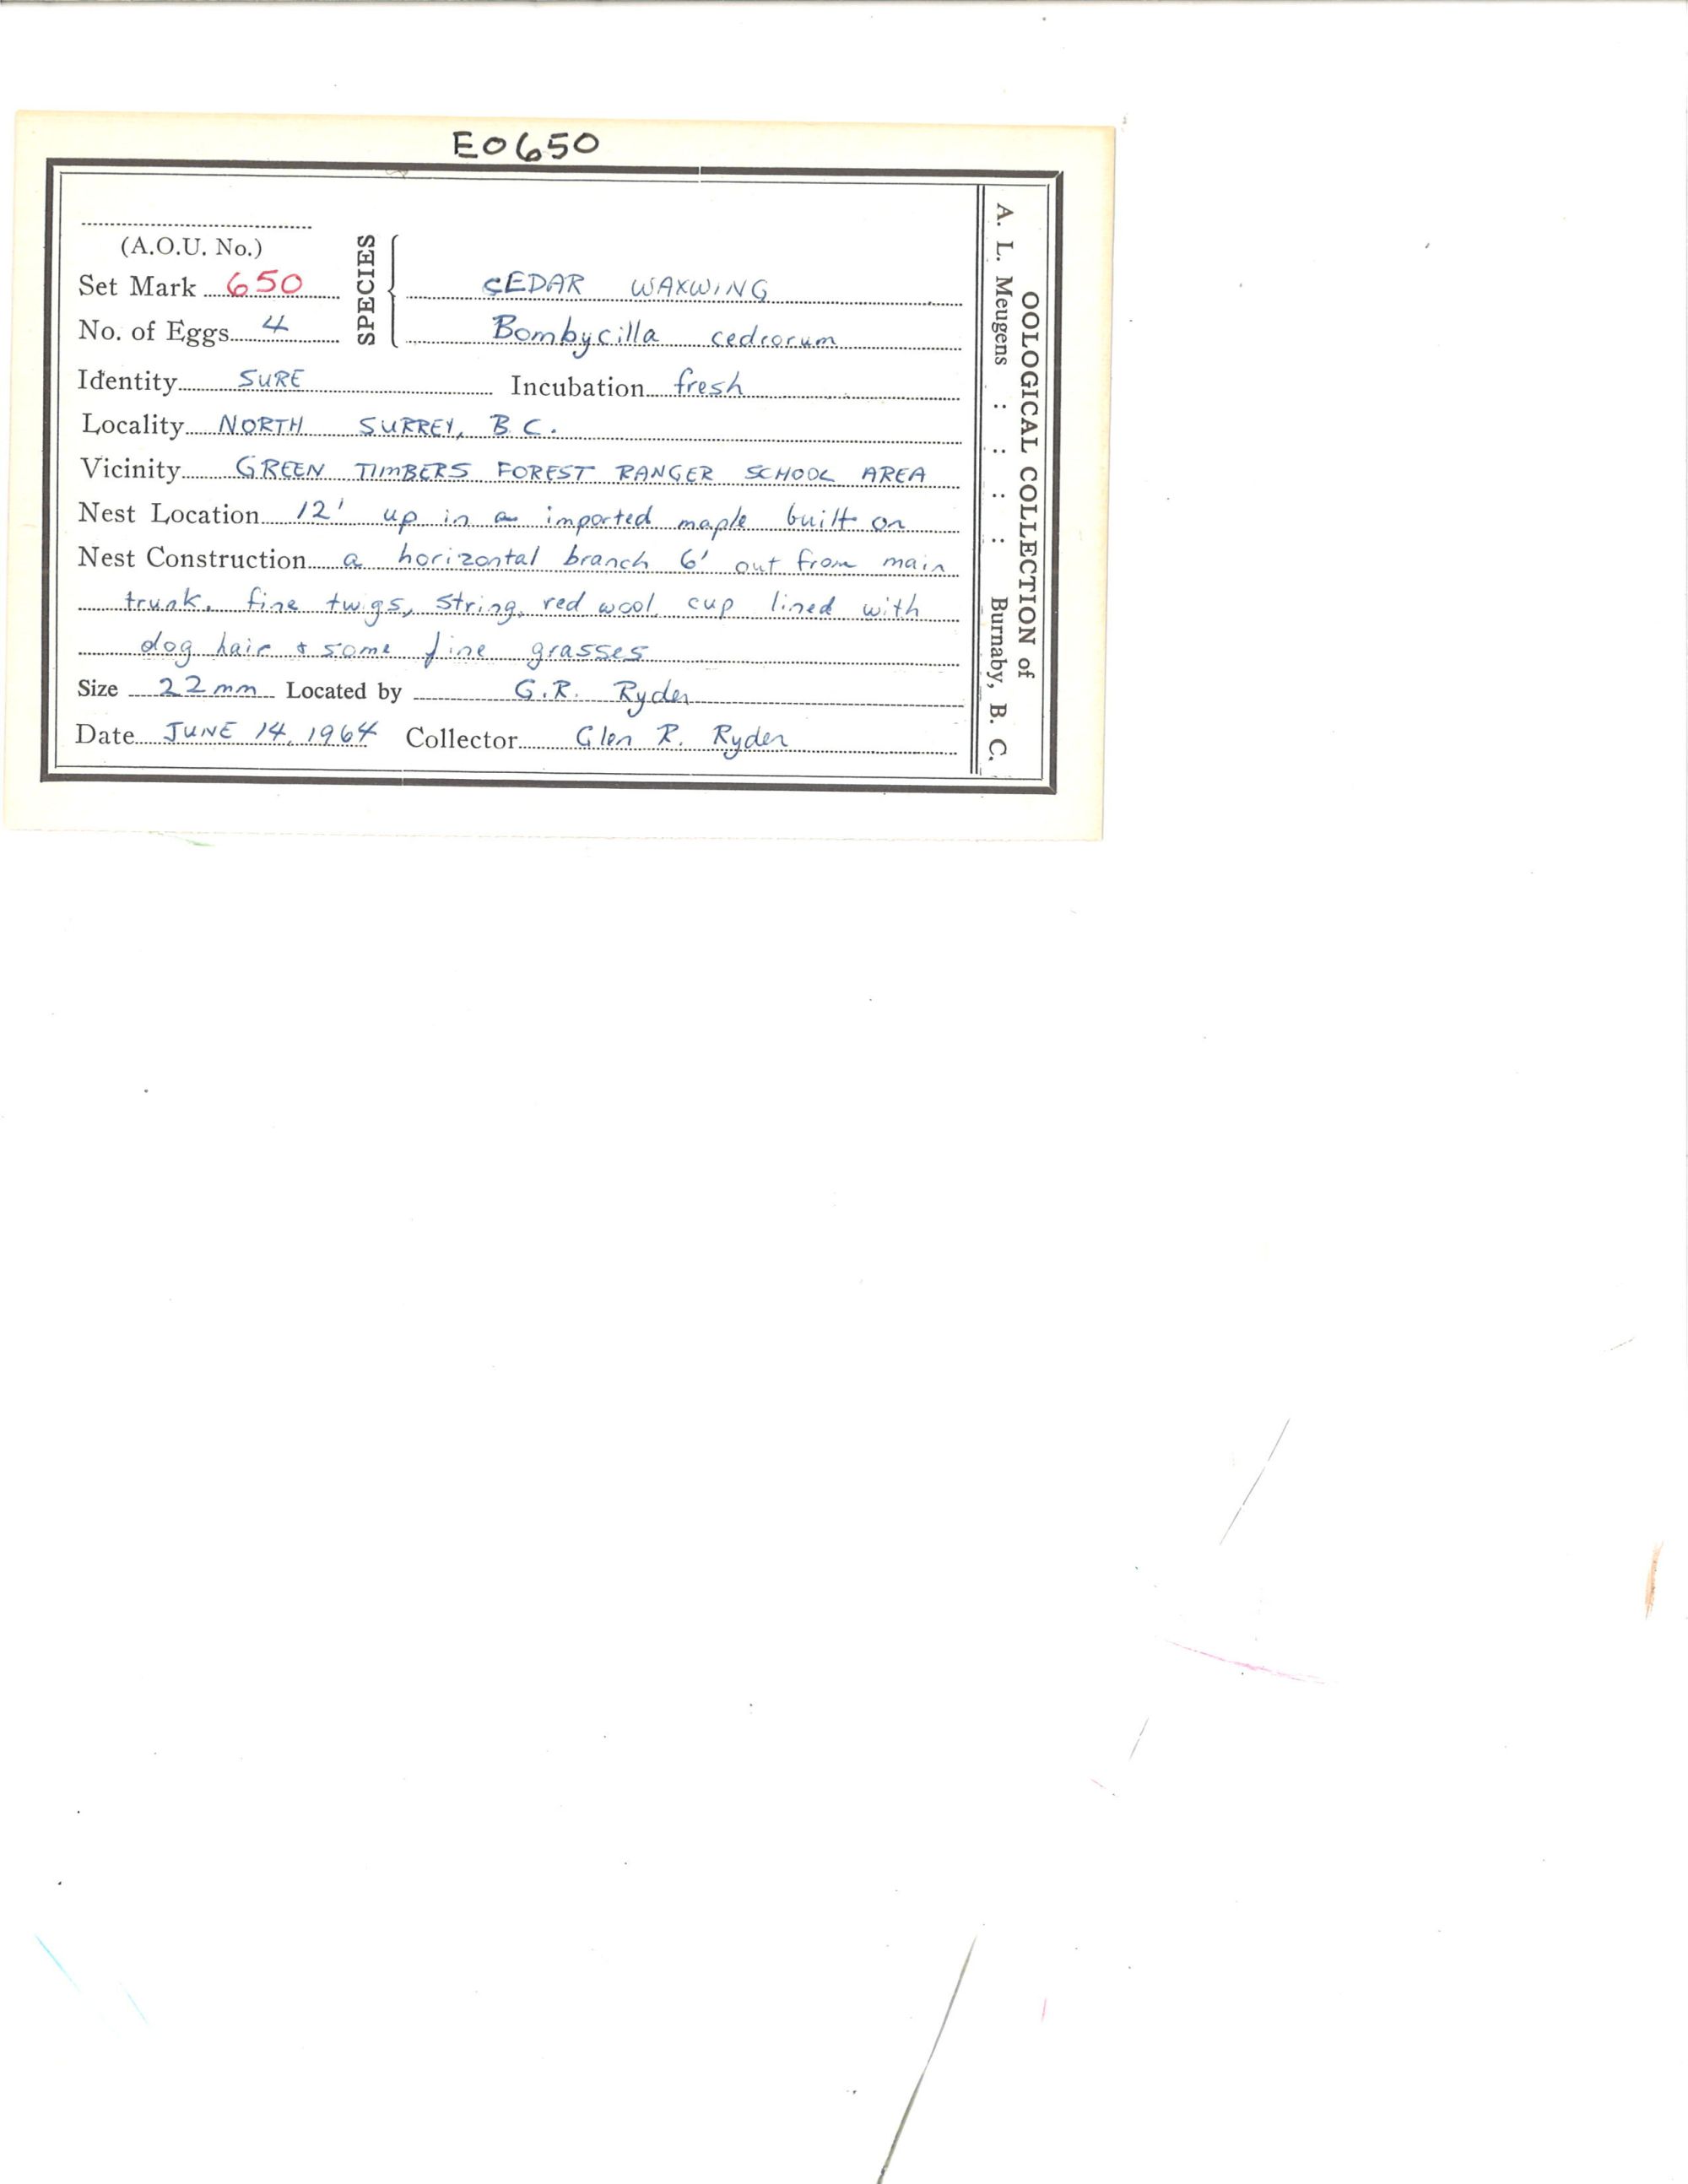 E0650
(A.O.U. No.)
Set Mark 650
No. of Eggs 4
SPECIES
CEDAR WAXWING
Bombycilla cedrorum
Identity SURE Incubation fresh
Locality NORTH SURREY, B.C.
Vicinity GREEN TIMBERS FOREST RANGER SCHOOL AREA
Nest Location 12' up in a imported maple built on
Nest Construction a horizontal branch 6' out from main
trunk. fine twigs, string, red wool, cup lined with
dog hair & some fine grasses
Size 22mm Located by G.R. Ryder
Date JUNE 14, 1964 Collector Glen R. Ryder
OOLOGICAL COLLECTION of
A. L. Meugens : : : : Burnaby, B. C.